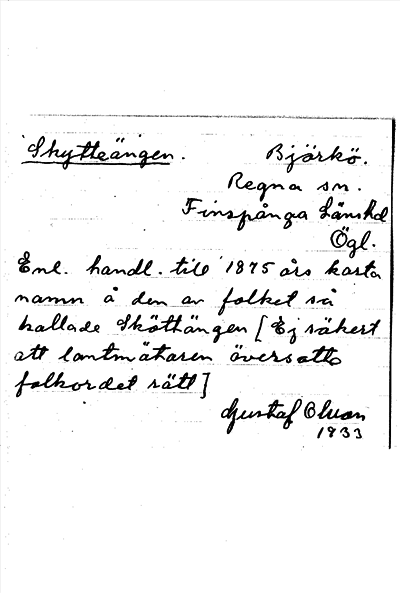 Skytteängen. Björkö.
Regna sn.
Finspånga Länshd
Ögl.
Enl. handl. till 1875 års karta
namn å den av folket så
kallade Sköttängen [Ej säkert
att lantmätaren översatt
folkordet rätt]
Gustaf Olson
1933